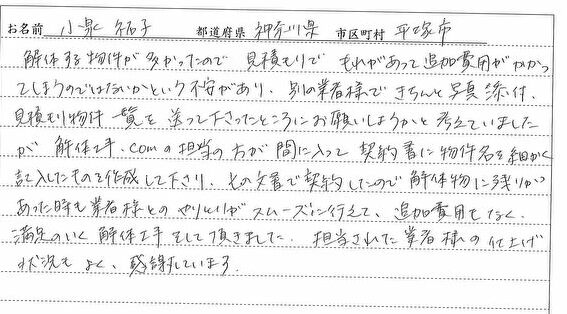 お名前 小泉 祐子 都道府県 神奈川県 市区町村 平塚市
解体する物件が多かったので 見積もりで もれがあって追加費用がかかっ
てしまうのではないかという不安があり、別の業者様できちんと写真添付、
見積もり物件一覧を送って下さったところにお願いしようかと考えていました
が 解体工事.comの担当の方が間に入って契約書に物件名を細かく
記入したものを作成して下さり、その文書で契約したので解体物に残りが
あった時も業者様とのやりとりがスムーズに行えて、追加費用もなく、
満足のいく解体工事をして頂きました。担当された業者様の仕上げ
状況もよく、感謝しています。